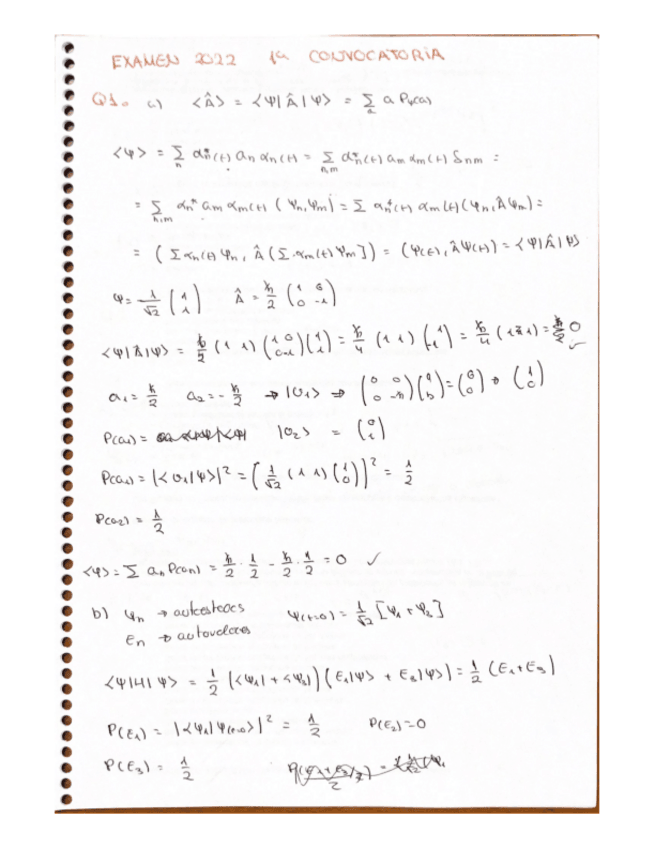 EXAMEN 2022 1ª CONVOCATORIA
Q1. a) <Â> = <Ψ|Â|Ψ> = Σ_a a P_Ψ(a)
<Ψ> = Σ_n α_n*(t) a_n α_n(t) = Σ_{n,m} α_n*(t) a_m α_m(t) δ_nm =
= Σ_{n,m} α_n* a_m α_m(t) (Ψ_n, Ψ_m) = Σ α_n*(t) α_m(t) (Ψ_n, ÂΨ_m) =
= (Σ α_n(t) Ψ_n, Â(Σ α_m(t) Ψ_m]) = (Ψ(t), ÂΨ(t)) = <Ψ|Â|Ψ>
Ψ = 1/√2 (1 1) Â = ħ/2 (1 0 0 -1)
<Ψ|Â|Ψ> = ħ/2 (1 1) (1 0 0 -1) (1 1) = ħ/4 (1 1) (1 -1) = ħ/4 (1-1) = 0 ✓
a1 = ħ/2 a2 = -ħ/2 → |U1> → (0 0 0 -ħ) (a b) = (0 0) → (1 0)
P(a1) = |U2> = (0 1)
P(a1) = |<U1|Ψ>|² = [1/√2 (1 1) (1 0)]² = 1/2
P(a2) = 1/2
<Ψ> = Σ a_n P(a_n) = ħ/2 · 1/2 - ħ/2 · 1/2 = 0 ✓
b) Ψ_n → autoestados Ψ(t=0) = 1/√2 [Ψ1 + Ψ3]
E_n → autovalores
<Ψ|H|Ψ> = 1/2 (<Ψ1| + <Ψ3|) (E1|Ψ> + E3|Ψ>) = 1/2 (E1+E3)
P(E1) = |<Ψ1|Ψ(t=0)>|² = 1/2 P(E2) = 0
P(E3) = 1/2